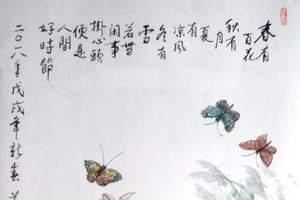 春有
百花
秋有
月
夏有
凉风
冬有
雪
若無
闲事
掛心頭
便是
人間
好時節
二〇一八年戊戌年新春